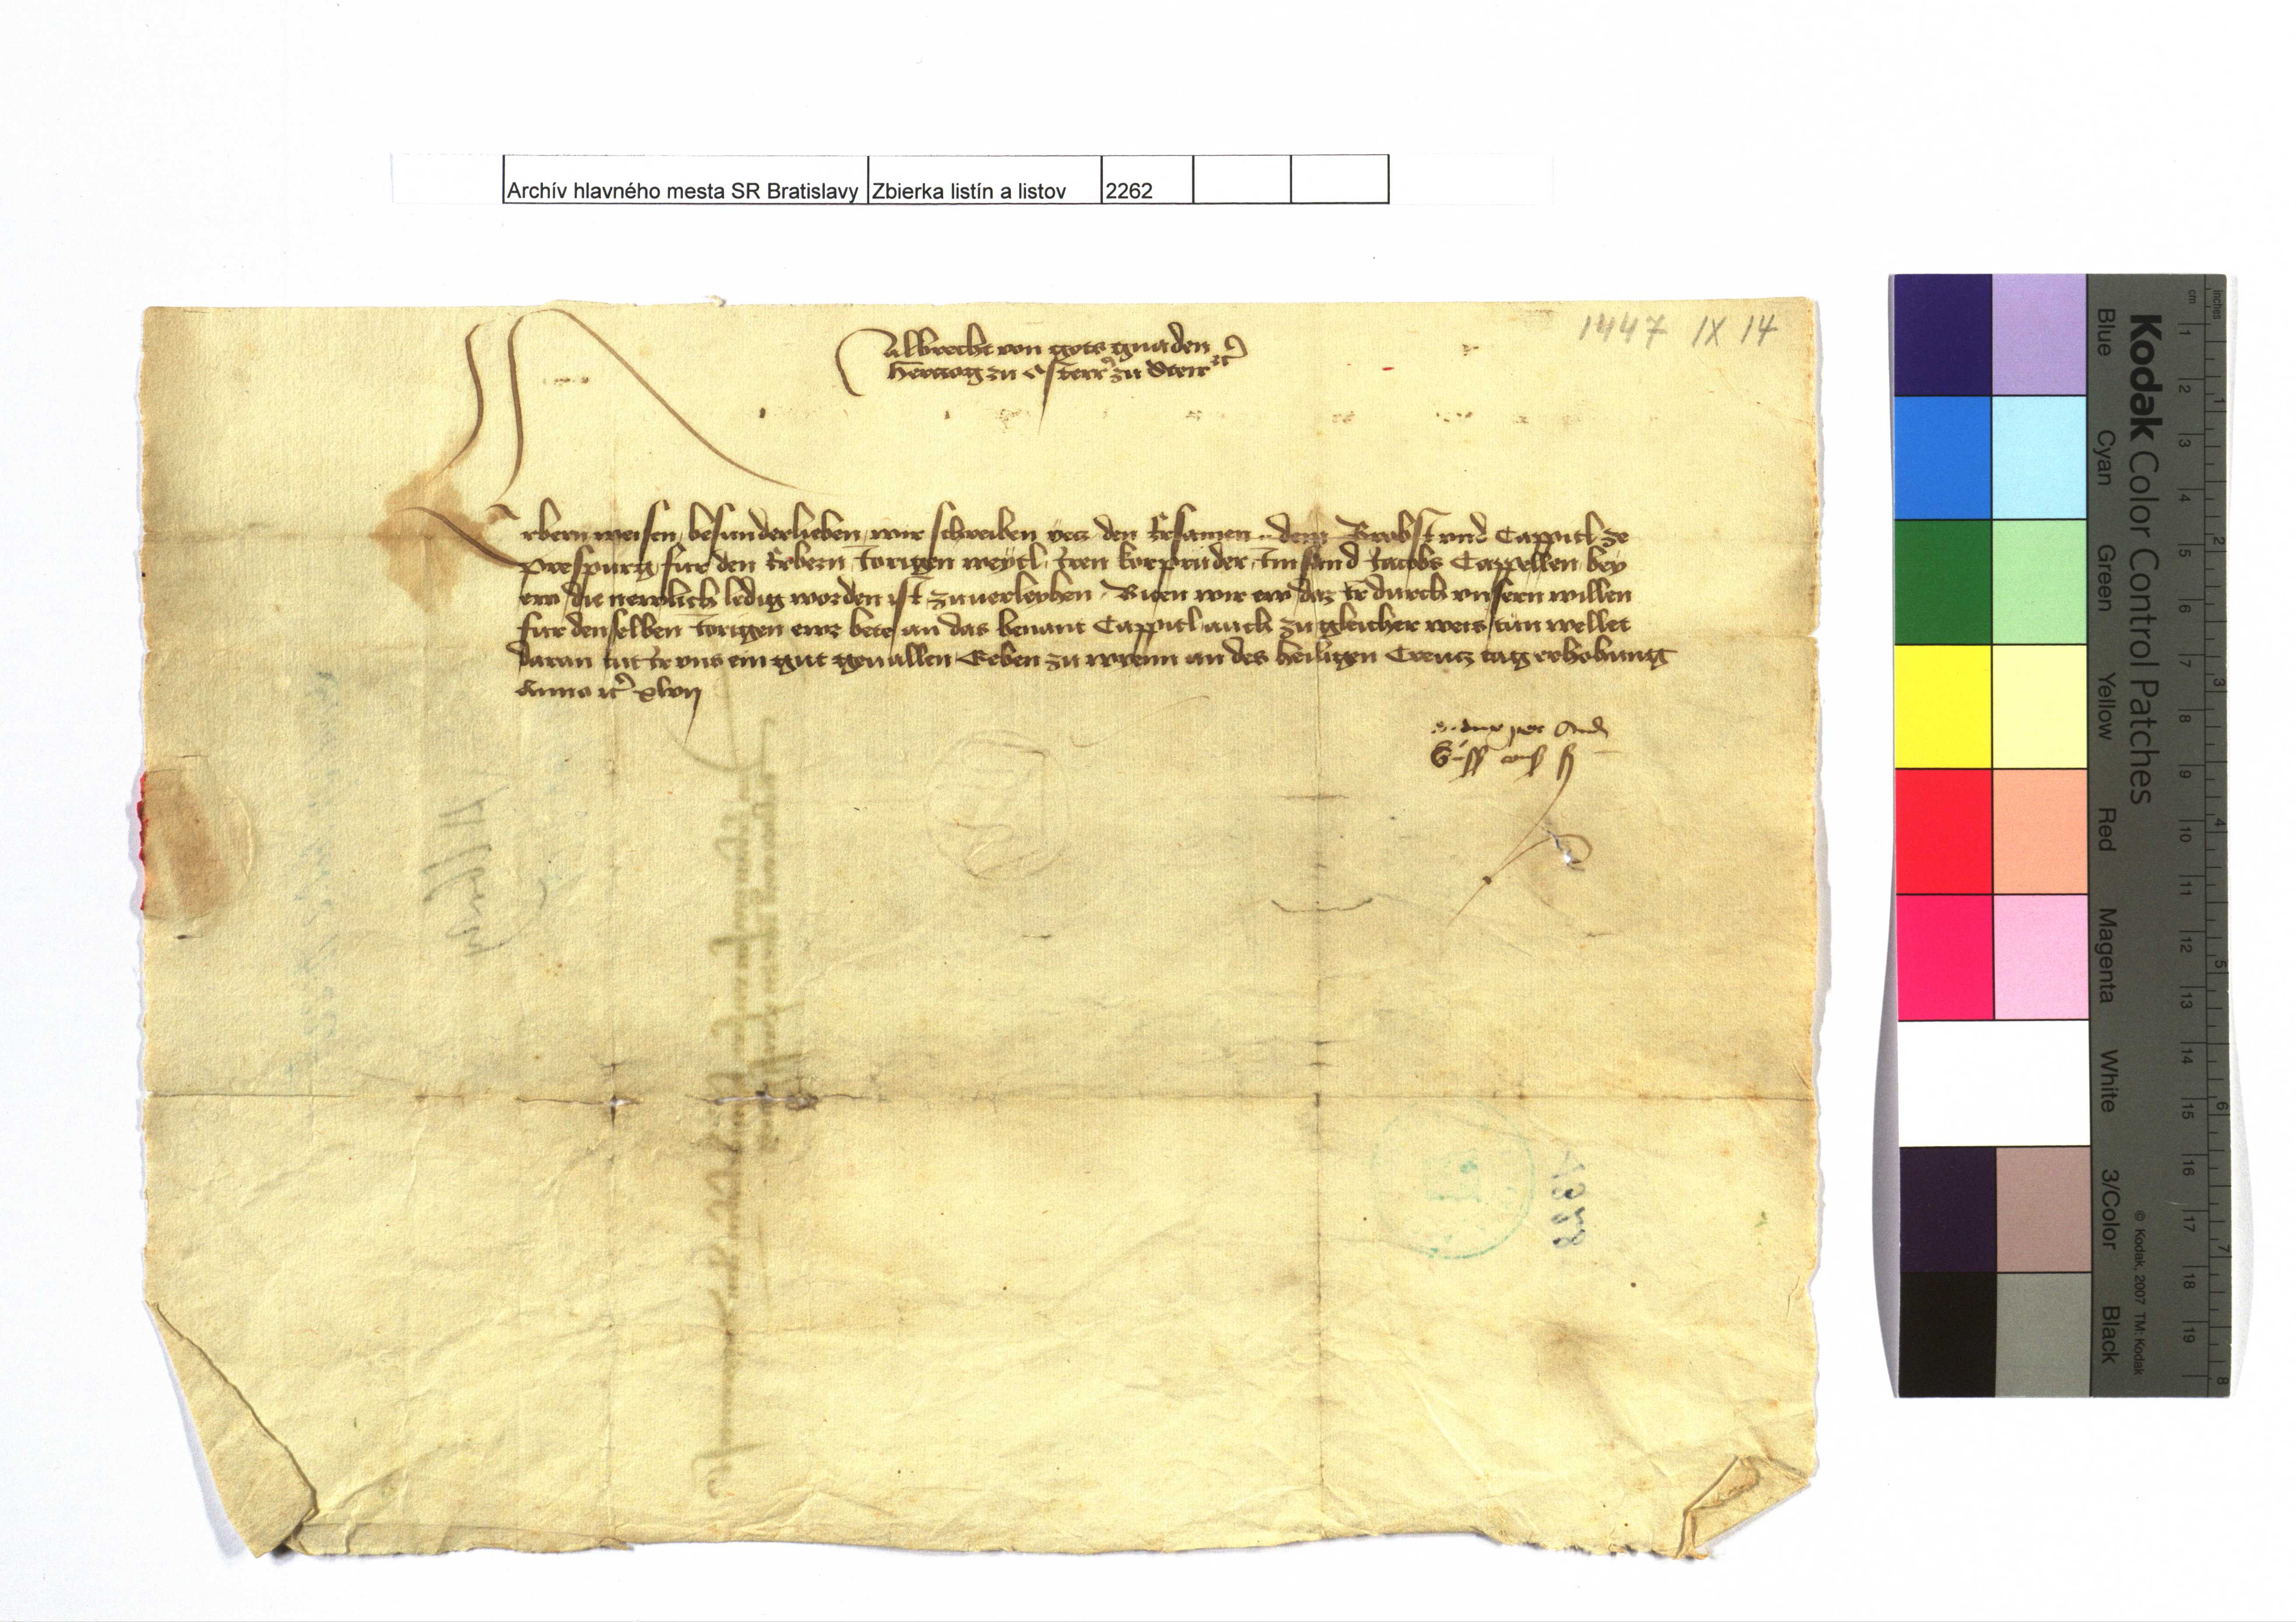 Archív hlavného mesta SR Bratislavy Zbierka listín a listov 2262
1447 IX 14
Albrecht von gots gnaden
Herczog zu Österr zu Steir etc
Erbern weisen besunderlieben wir schreiben yecz den Ersamen .. dem Brobst vnd Cappitl ze
Prespurg fur den Erbern Jorigen weytl Iren korpruder Im sand Jacobs Cappellen bey
ew die newlich ledig worden ist zuuerleyhen Biten wir ew daz Ir durch vnsern willen
fur denselben Jorigen ewr bete an das benant Cappitl auch zu gleicher weis tun wellet
daran tut Ir vns ein gut geuallen Geben zu wienn an des heiligen Creucz tag erhohung
Anno etc xlvij
d. dux per And
Kodak Color Control Patches
Blue Cyan Green Yellow Red Magenta White 3/Color Black
© Kodak, 2007 TM: Kodak
inches 1 2 3 4 5 6 7 8
cm 1 2 3 4 5 6 7 8 9 10 11 12 13 14 15 16 17 18 19